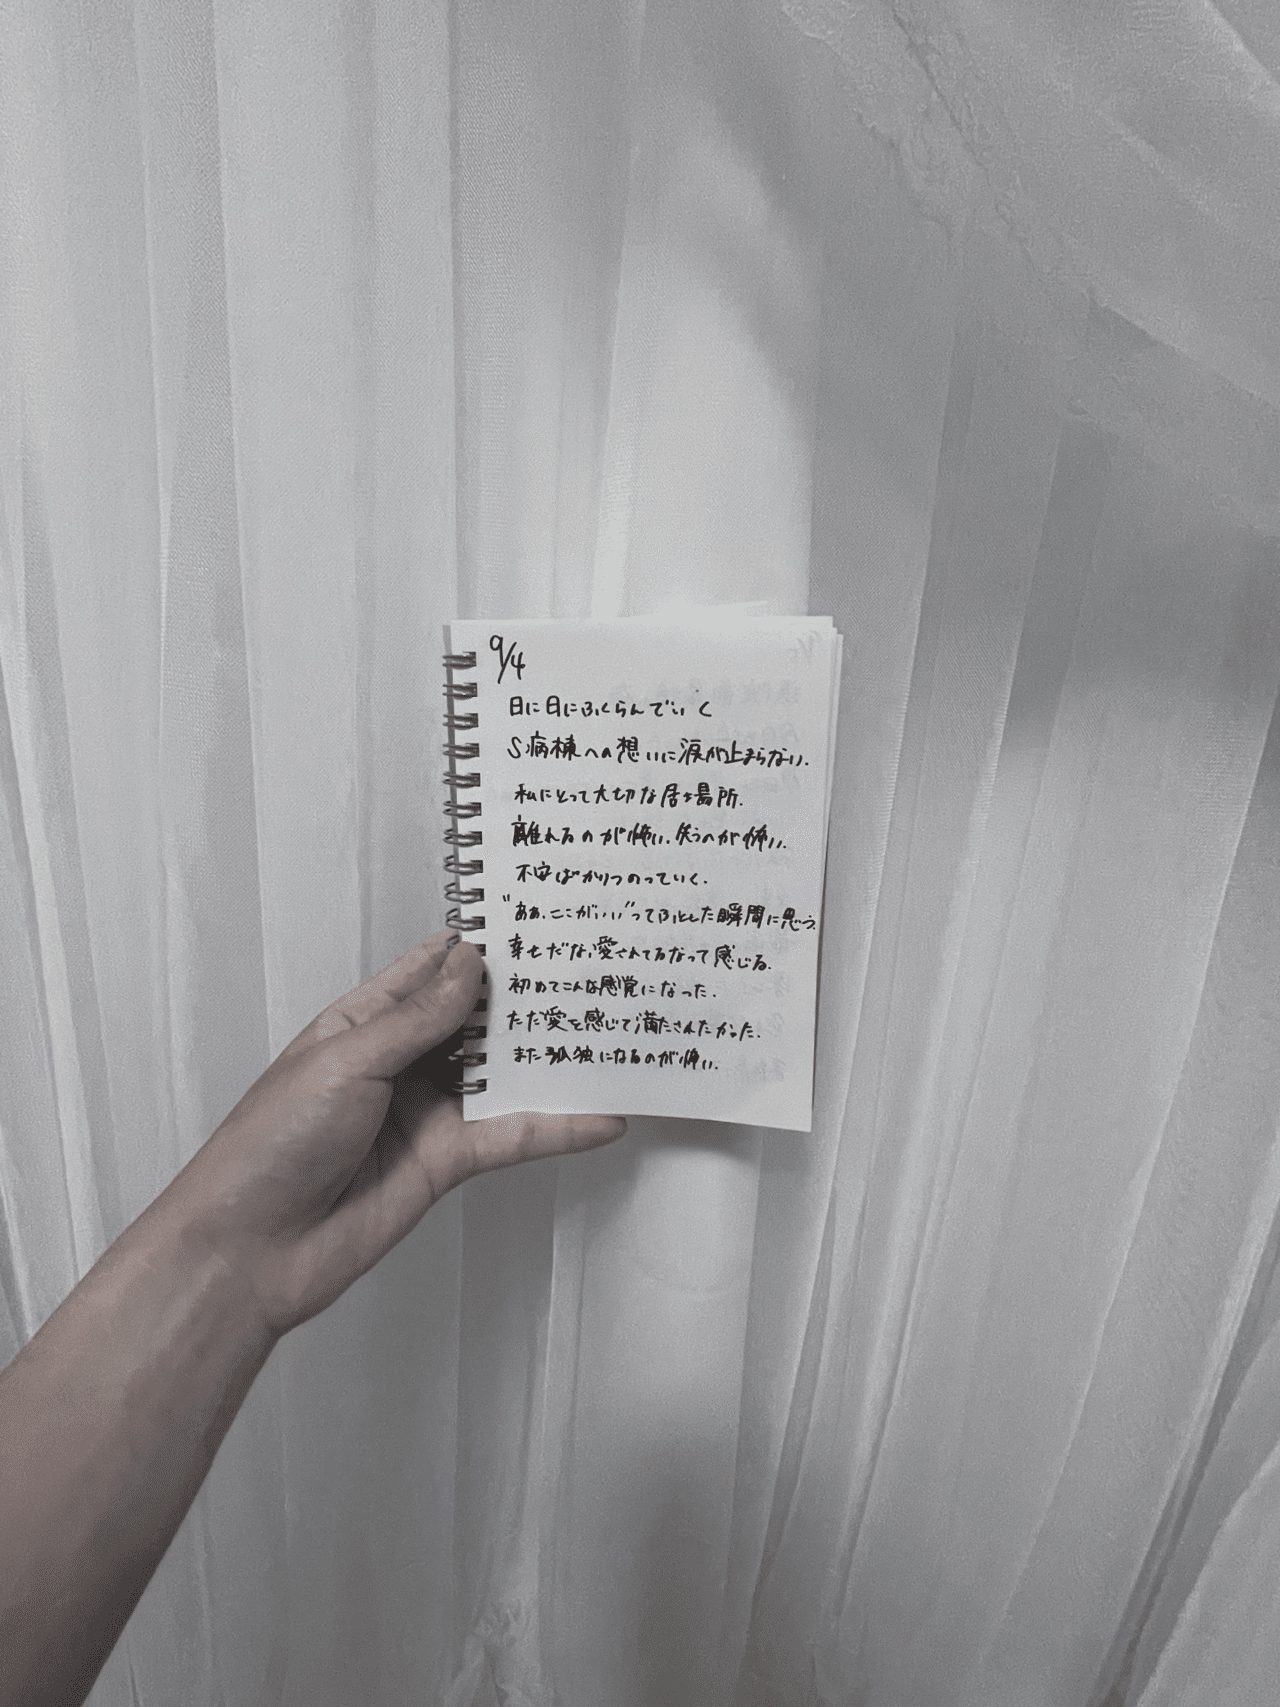 9/4
日に日にふくらんでいく
S病棟への想いに涙が止まらない.
私にとって大切な居る場所.
離れるのが怖い.失うのが怖い.
不安ばかりつのっていく.
"ああ、ここがいい"ってふとした瞬間に思う.
幸せだな,愛されてるなって感じる.
初めてこんな感覚になった.
ただ愛を感じて満たされたかった.
また孤独になるのが怖い.